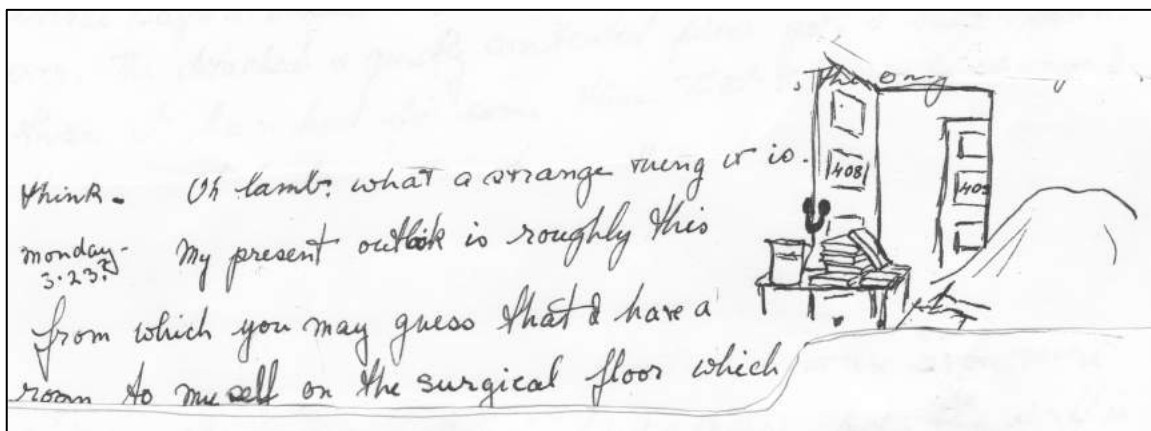 , the only
think. Oh lamb. what a strange thing it is.
monday - My present outlook is roughly this
3.23?
from which you may guess that I have a
room to myself on the surgical floor which
408
409